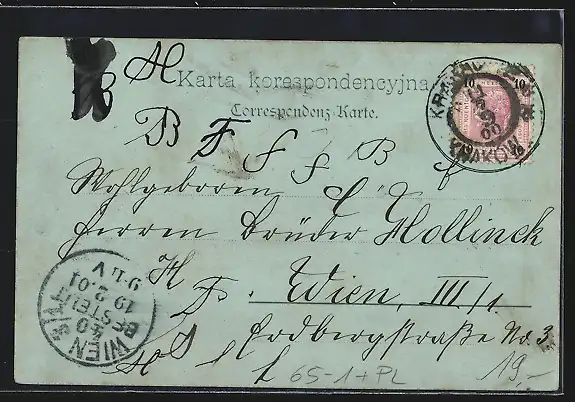 B H
Karta korespondencyjna
Correspondenz-Karte.
B F f f B f
Wohlgeboren
Herren Brüder Hollinek
Wien, III/1.
Erdbergstraße No. 3
65-1+PL
19,-
KRAKÓW
10
WIEN 3/1
40
BESTELLT
19 2 01
9-11 V